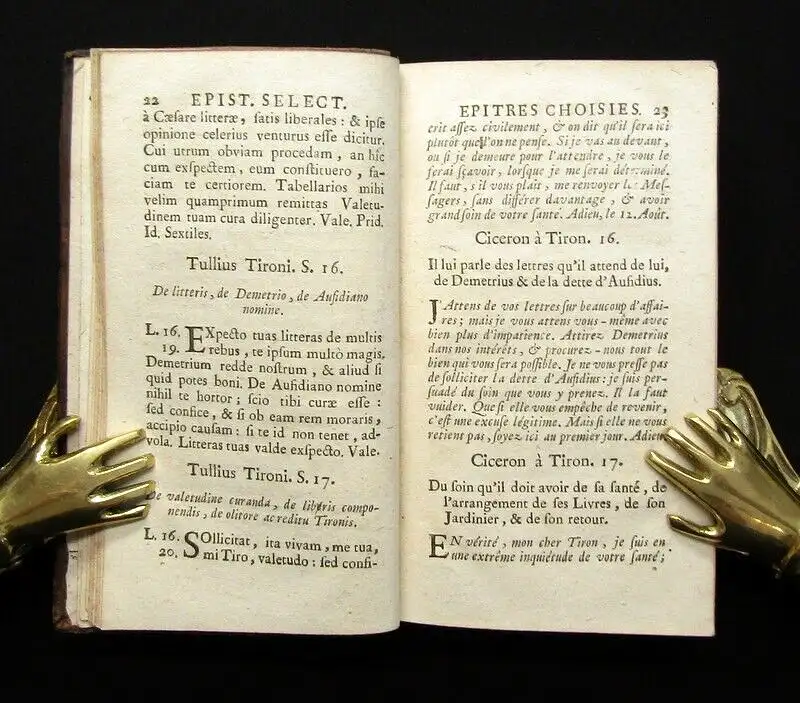 22 EPIST. SELECT.
à Cæsare litteræ, ſatis liberales : & ipſe
opinione celerius venturus eſſe dicitur.
Cui utrum obviam procedam, an hîc
cum exſpectem, eum conſtituero, fa-
ciam te certiorem. Tabellarios mihi
velim quamprimum remittas Valetu-
dinem tuam cura diligenter. Vale. Prid.
Id. Sextiles.
Tullius Tironi. S. 16.
De litteris, de Demetrio, de Aufidiano
nomine.
L. 16. EXpecto tuas litteras de multis
19. rebus, te ipſum multò magis.
Demetrium redde noſtrum, & aliud ſi
quid potes boni. De Aufidiano nomine
nihil te hortor ; ſcio tibi curæ eſſe :
ſed confice, & ſi ob eam rem moraris,
accipio cauſam : ſi te id non tenet, ad-
vola. Litteras tuas valde exſpecto. Vale.
Tullius Tironi. S. 17.
De valetudine curanda, de libris compo-
nendis, de olitore ac reditu Tironis.
L. 16. SOllicitat, ita vivam, me tua,
20. mi Tiro, valetudo : ſed confi-
EPITRES CHOISIES. 23
crit aſſez civilement, & on dit qu'il ſera ici
plutôt que l'on ne penſe. Si je vas au devant,
ou ſi je demeure pour l'attendre, je vous le
ferai ſçavoir, lorſque je me ſerai déterminé.
Il faut, s'il vous plaît, me renvoyer les Meſ-
ſagers, ſans différer davantage, & avoir
grand ſoin de votre ſanté. Adieu, le 12. Août.
Ciceron à Tiron. 16.
Il lui parle des lettres qu'il attend de lui,
de Demetrius & de la dette d'Aufidius.
J'Attens de vos lettres ſur beaucoup d'affai-
res ; mais je vous attens vous-même avec
bien plus d'impatience. Attirez Demetrius
dans nos intérêts, & procurez-nous tout le
bien qui vous ſera poſſible. Je ne vous preſſe pas
de ſolliciter la dette d'Aufidius : je ſuis per-
ſuadé du ſoin que vous y prenez. Il la faut
vuider. Que ſi elle vous empêche de revenir,
c'eſt une excuſe légitime. Mais ſi elle ne vous
retient pas, ſoyez ici au premier jour. Adieu.
Ciceron à Tiron. 17.
Du ſoin qu'il doit avoir de ſa ſanté, de
l'arrangement de ſes Livres, de ſon
Jardinier, & de ſon retour.
EN vérité, mon cher Tiron, je ſuis en
une extrême inquiétude de votre ſanté ;